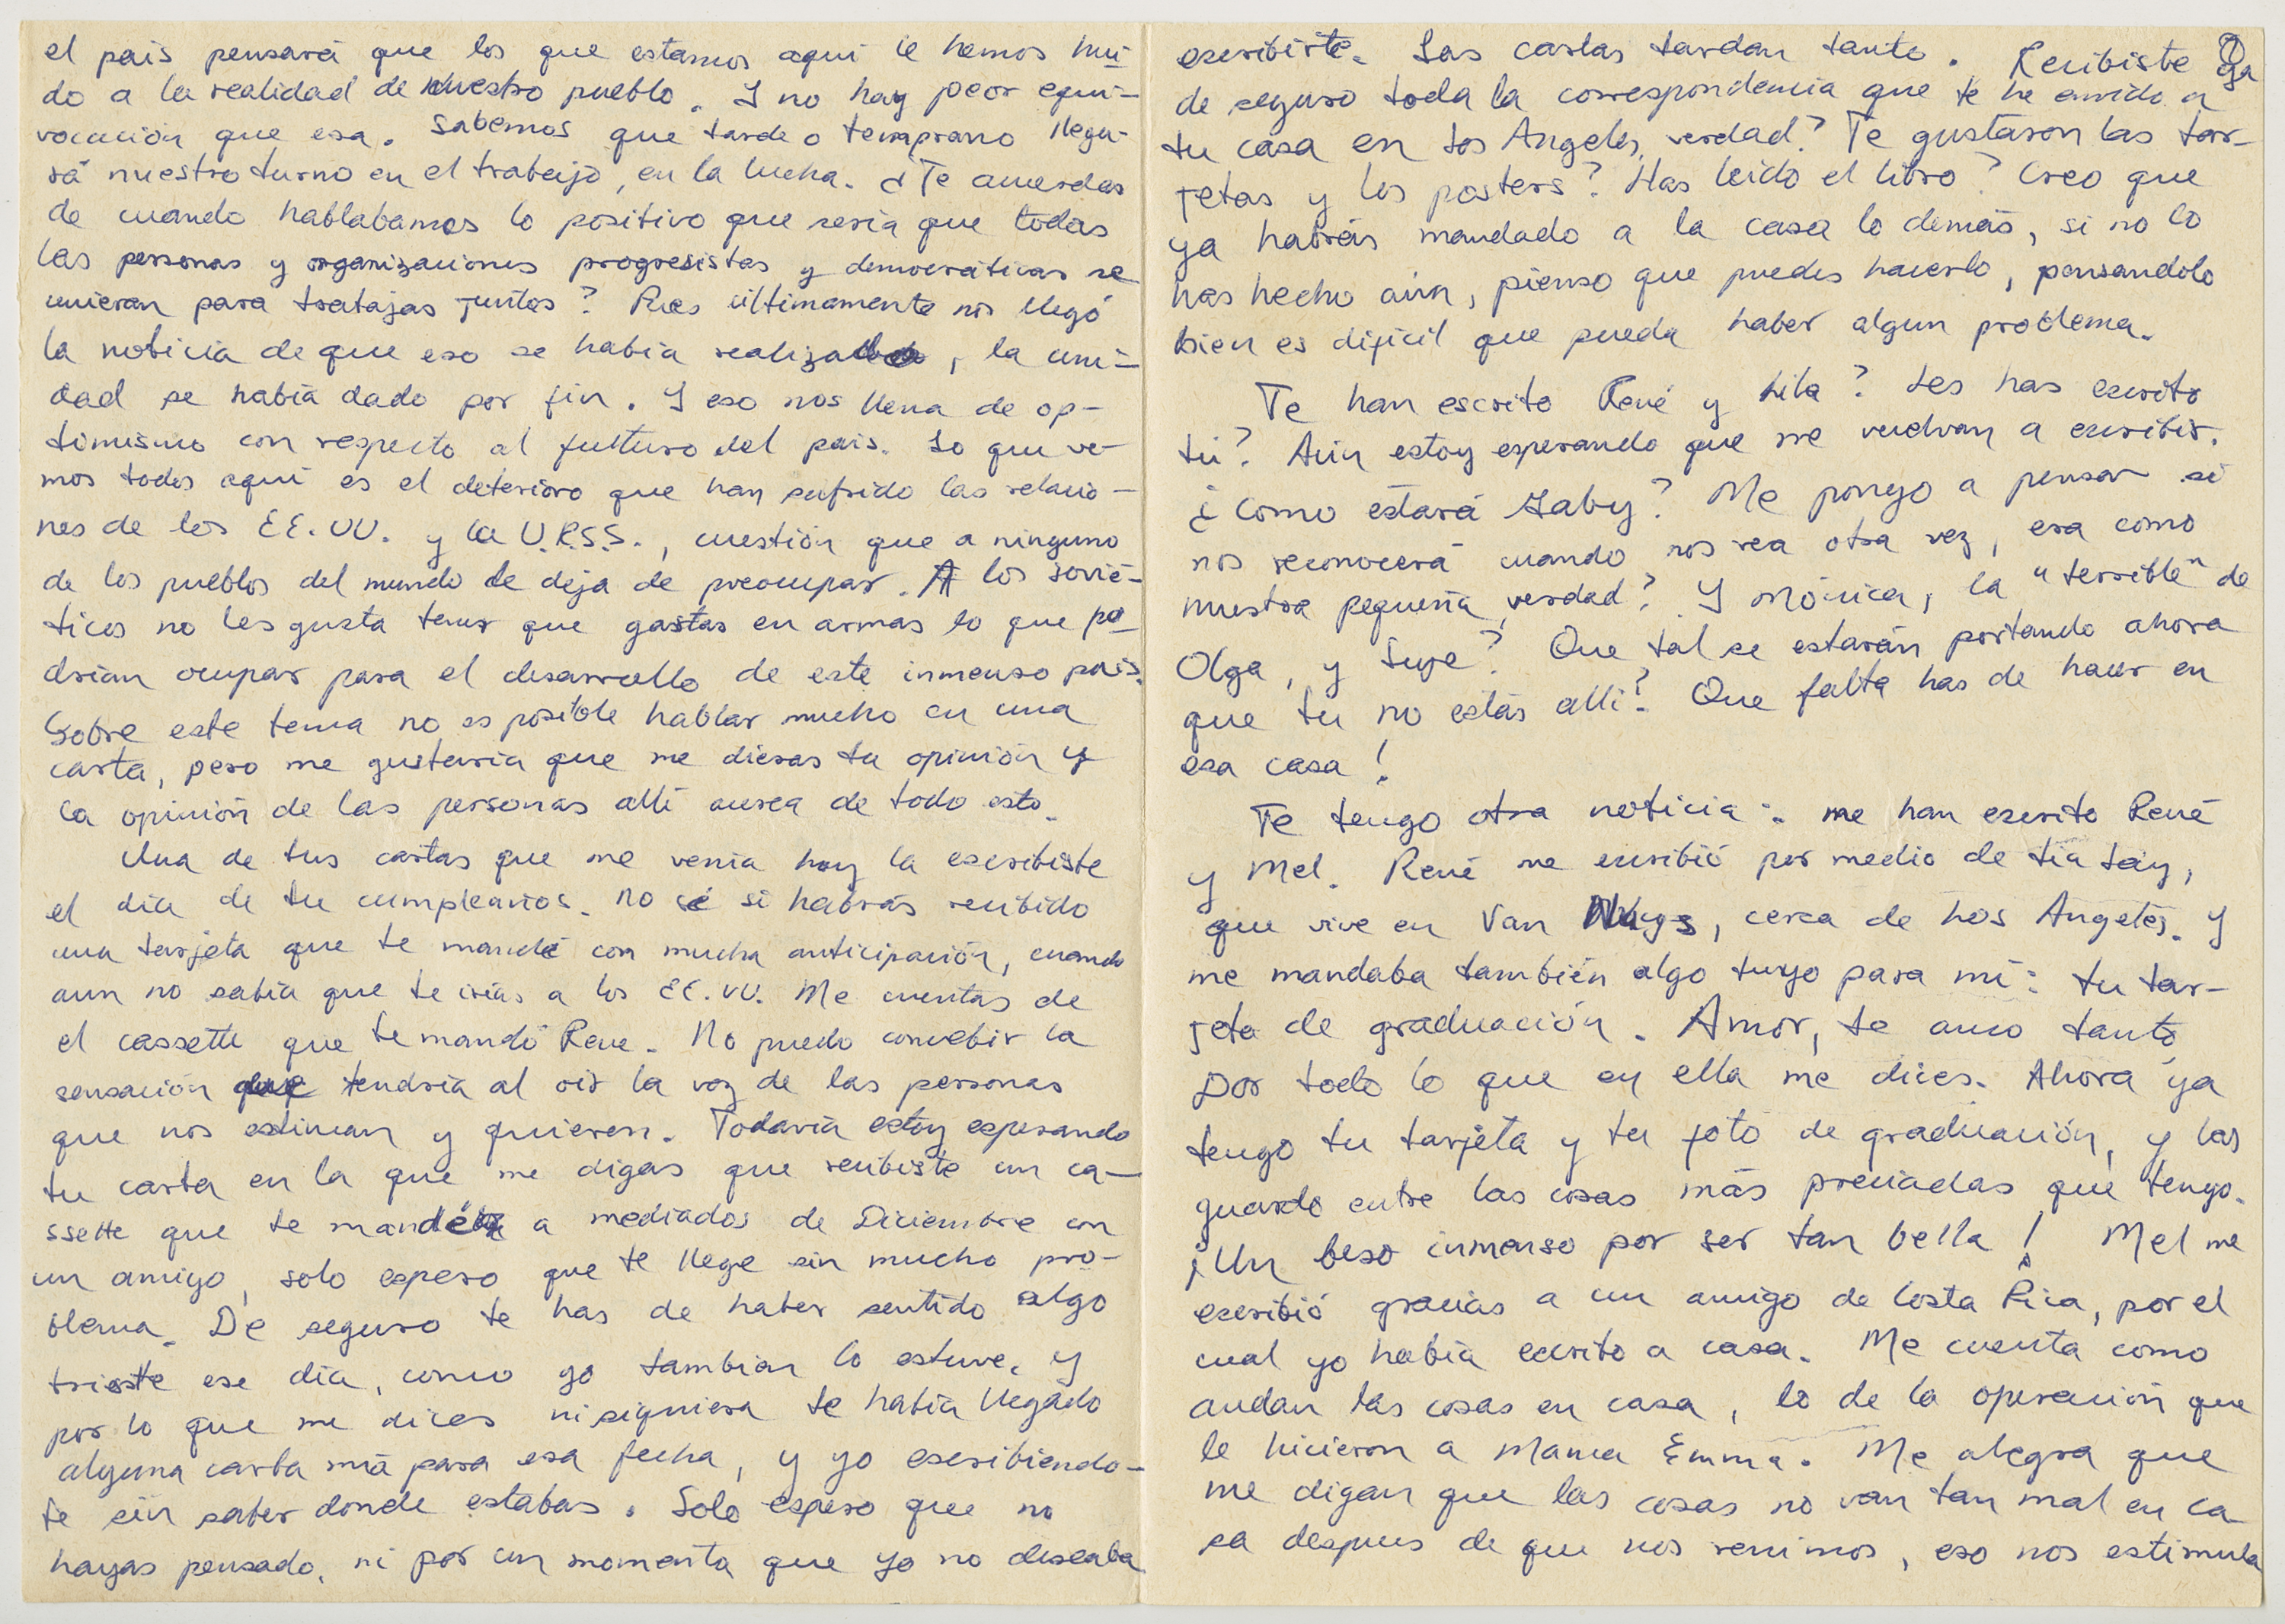 el país pensará que los que estamos aquí le hemos hui-
do a la realidad de nuestro pueblo. Y no hay peor equi-
vocación que esa. Sabemos que tarde o temprano llega-
rá nuestro turno en el trabajo, en la lucha. ¿Te acuerdas
de cuando hablabamos lo positivo que sería que todas
las personas y organizaciones progresistas y democráticas se
unieran para trabajar juntos? Pues últimamente nos llegó
la noticia de que eso se había realizado, la uni-
dad se había dado por fin. Y eso nos llena de op-
timismo con respecto al futuro del país. Lo que ve-
mos todos aquí es el deterioro que han sufrido las relacio-
nes de los EE.UU. y la U.R.S.S., cuestión que a ninguno
de los pueblos del mundo le deja de preocupar. A los sovié-
ticos no les gusta tener que gastar en armas lo que po-
drían ocupar para el desarrollo de este inmenso país.
Sobre este tema no es posible hablar mucho en una
carta, pero me gustaría que me dieras tu opinión y
la opinión de las personas allí acerca de todo esto.
Una de tus cartas que me venía hoy la escribiste
el día de tu cumpleaños. No sé si habrás recibido
una tarjeta que te mandé con mucha anticipación, cuando
aun no sabía que te irías a los EE.UU. Me cuentas de
el cassette que te mandó Rene. No puedo concebir la
sensación que tendría al oir la voz de las personas
que nos estiman y quieren. Todavía estoy esperando
tu carta en la que me digas que recibiste un ca-
ssette que te mandé a mediados de Diciembre con
un amigo, solo espero que te llege sin mucho pro-
blema. De seguro te has de haber sentido algo
triste ese día, como yo tambien lo estuve, y
por lo que me dices ni siquiera te había llegado
alguna carta mía para esa fecha, y yo escribiendo-
te sin saber donde estabas. Solo espero que no
hayas pensado, ni por un momento que yo no deseaba
escribirte. Las cartas tardan tanto. Recibiste ya
de seguro toda la correspondencia que te he enviado a
tu casa en Los Angeles, verdad? Te gustaron las tar-
jetas y los posters? Has leído el libro? Creo que
ya habrás mandado a la casa lo demás, si no lo
has hecho aún, pienso que puedes hacerlo, pensandolo
bien es difícil que pueda haber algun problema.
Te han escrito René y Lila? Les has escrito
tú? Aún estoy esperando que me vuelvan a escribir.
¿Como estará Gaby? Me pongo a pensar si
nos reconocerá cuando nos vea otra vez, era como
nuestra pequeña, verdad? Y Mónica, la "terrible" de
Olga, y Suye? Que tal se estarán portando ahora
que tu no estás allí? Que falta has de hacer en
esa casa!
Te tengo otra noticia: me han escrito René
y Mel. René me escribió por medio de tía Tey,
que vive en Van Nuys, cerca de Los Angeles. Y
me mandaba también algo tuyo para mí: tu tar-
jeta de graduación. Amor, te amo tanto
por todo lo que en ella me dices. Ahora ya
tengo tu tarjeta y tu foto de graduación, y las
guardo entre las cosas más preciadas que tengo.
¡Un beso inmenso por ser tan bella! Mel me
escribió gracias a un amigo de Costa Rica, por el
cual yo había escrito a casa. Me cuenta como
andan las cosas en casa, lo de la operación que
le hicieron a Mama Emma. Me alegra que
me digan que las cosas no van tan mal en ca-
sa despues de que nos venimos, eso nos estimula